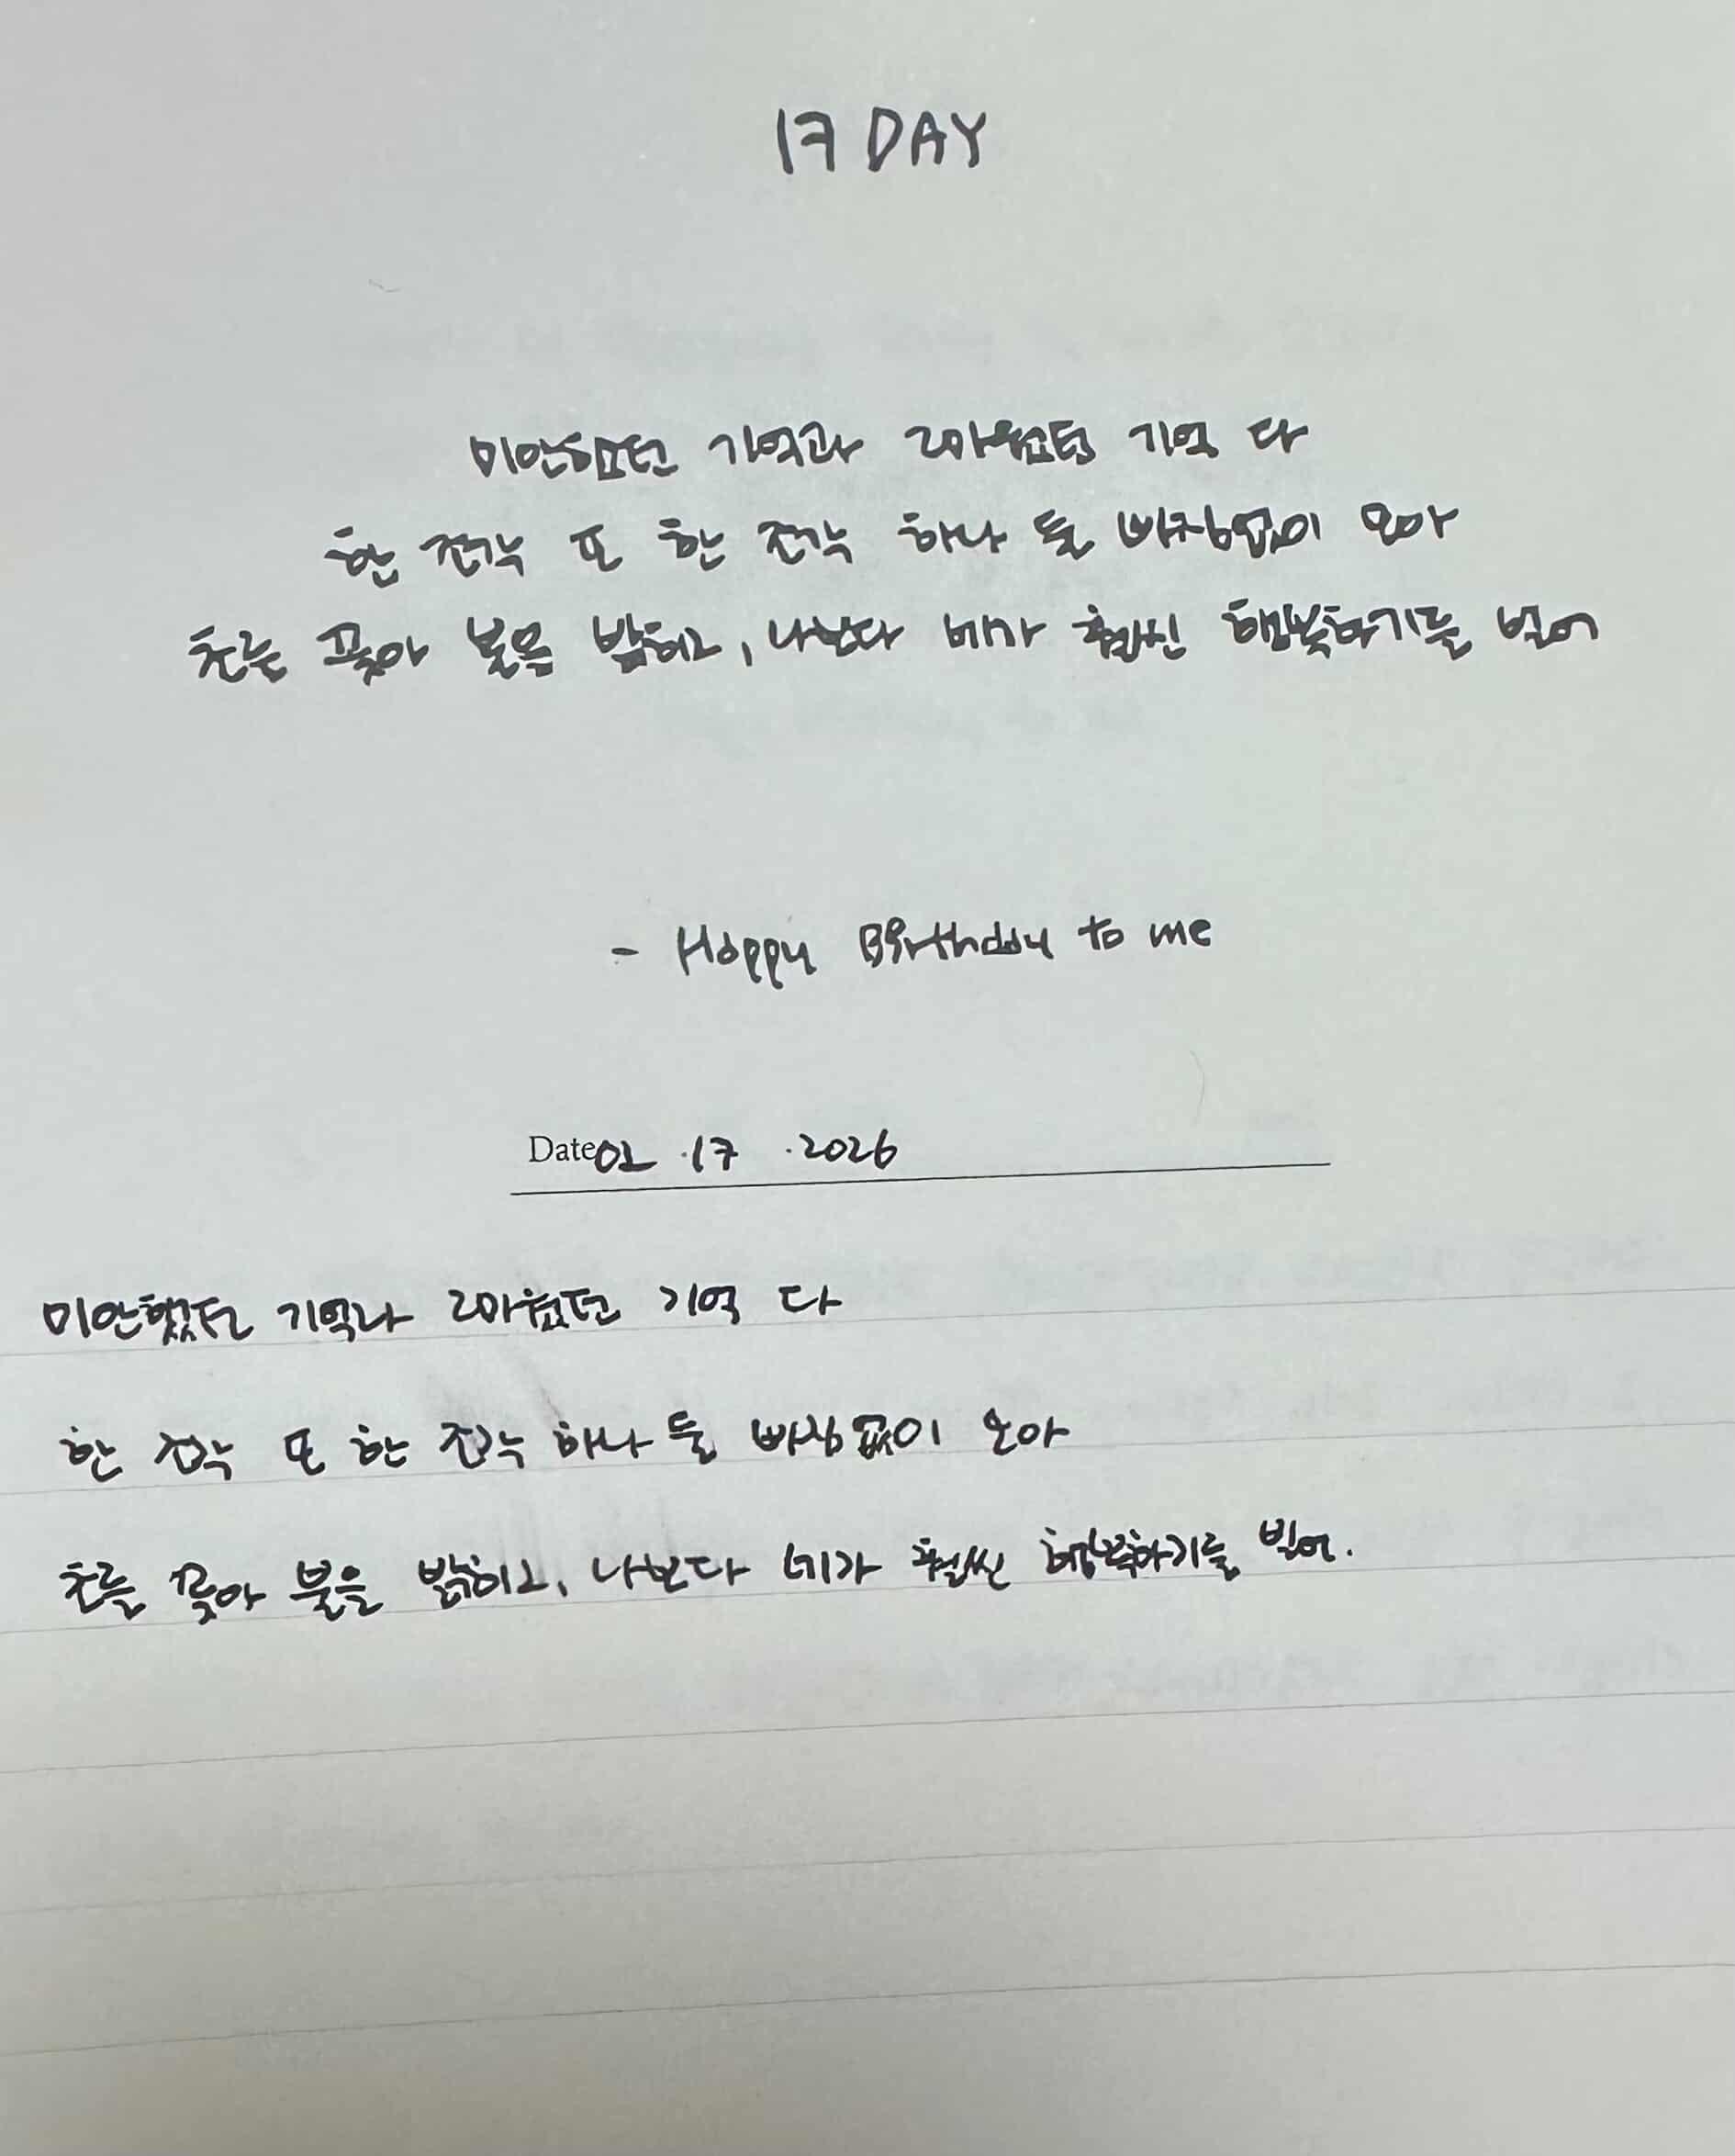 17 DAY
미안했던 기억과 고마웠던 기억 다
한 조각 또 한 조각 하나 둘 빠짐없이 모아
초를 꽂아 불을 밝히고, 나보다 네가 훨씬 행복하기를 빌어
- Happy Birthday to me
Date 01 .17 .2026
미안했던 기억과 고마웠던 기억 다
한 조각 또 한 조각 하나 둘 빠짐없이 모아
초를 꽂아 불을 밝히고, 나보다 네가 훨씬 행복하기를 빌어.